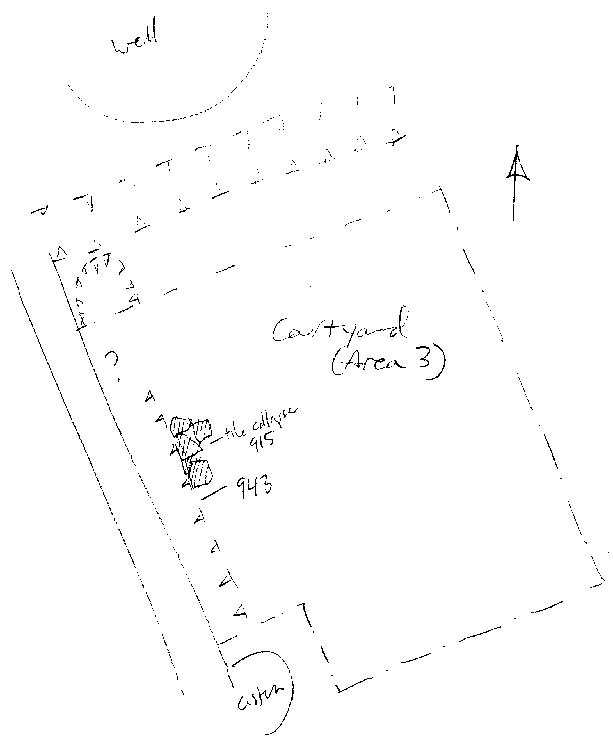 well
Courtyard
(Area 3)
?
tile collapse
915
943
cistern